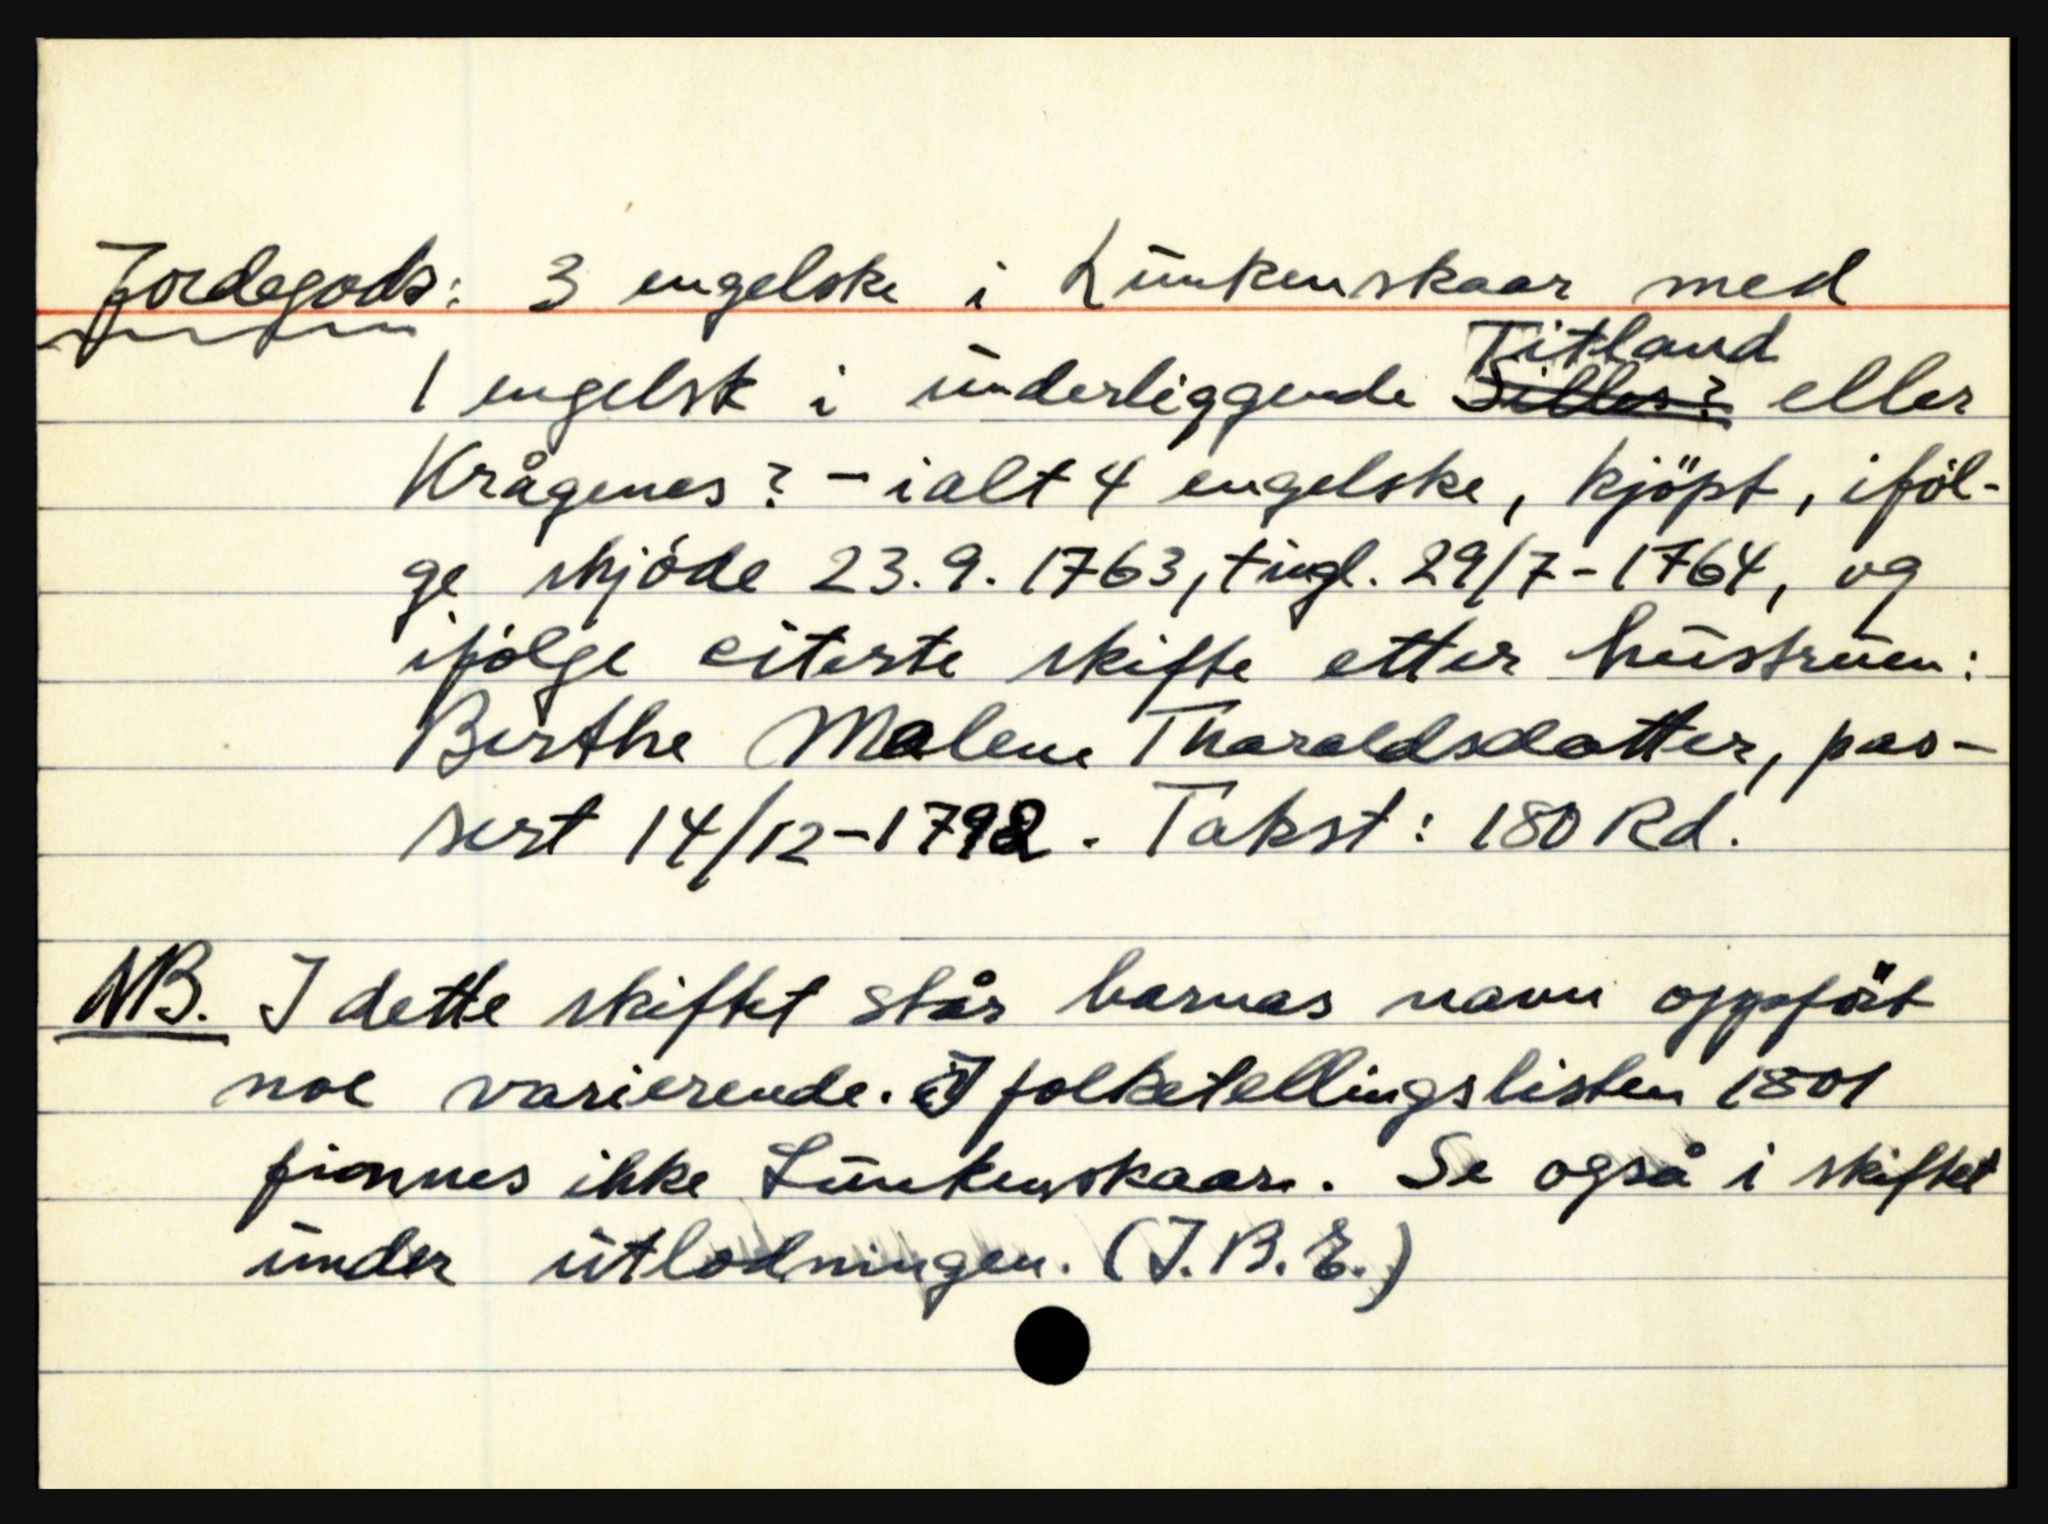 Jordegods: 3 engelske i Lunkenskaar med
Titland
1 engelsk i underliggende Silles? eller
Krågenes? - ialt 4 engelske, kjöpt, iföl-
ge skjöde 23.9.1763, tingl. 29/7-1764, og
ifölge citerte skifte etter hustruen:
Berthe Malene Tharaldsdatter, pas-
sert 14/12-1792. Takst: 180 Rd.
NB. I dette skiftet står barnas navn oppfört
noe varierende. I folketellingslisten 1801
finnes ikke Lunkenskaar. Se også i skiftet
under utlodningen. (J.B.E.)